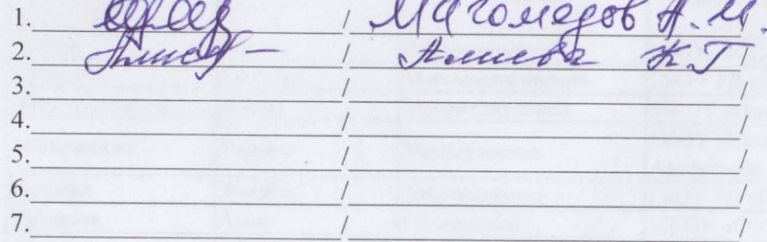 1. / Магомедов А.М. /
2. Алиев / Алиева К.Г /
3. / /
4. / /
5. / /
6. / /
7. / /